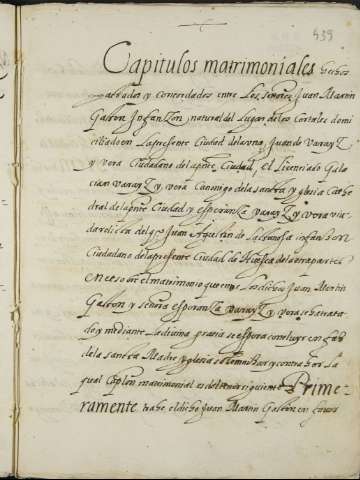 439
Capitulos matrimoniales hechos
pactados y concordados entre los señores Juan Martin
Galeon Infanzon natural del lugar de los Cortales domi
ciliado en la presente Ciudad de una, Juan de Varayz
y Vera Ciudadano de la pnte Ciudad, el licenciado Gala
cian Varayz y Vera Canonigo de la sancta yglesia Cathe
dral de la pnte Ciudad y esperanza Varayz y Vera viu
da relicta del qo Juan Aguilon de infançon
Ciudadano de la presente Ciudad de Huesca de la otra partes
en et sobre el matrimonio que entre los dichos Juan Martin
Galeon y señora esperanza Varayz y Vera se ha trata
do y mediante la divina gracia se espera concluyr en faz
de la sancta Madre yglesia solemnizar y contraher La
qual Caplon matrimonial es del tenor siguiente Prime
ramente trahe el dicho Juan Martin Galeon en favor